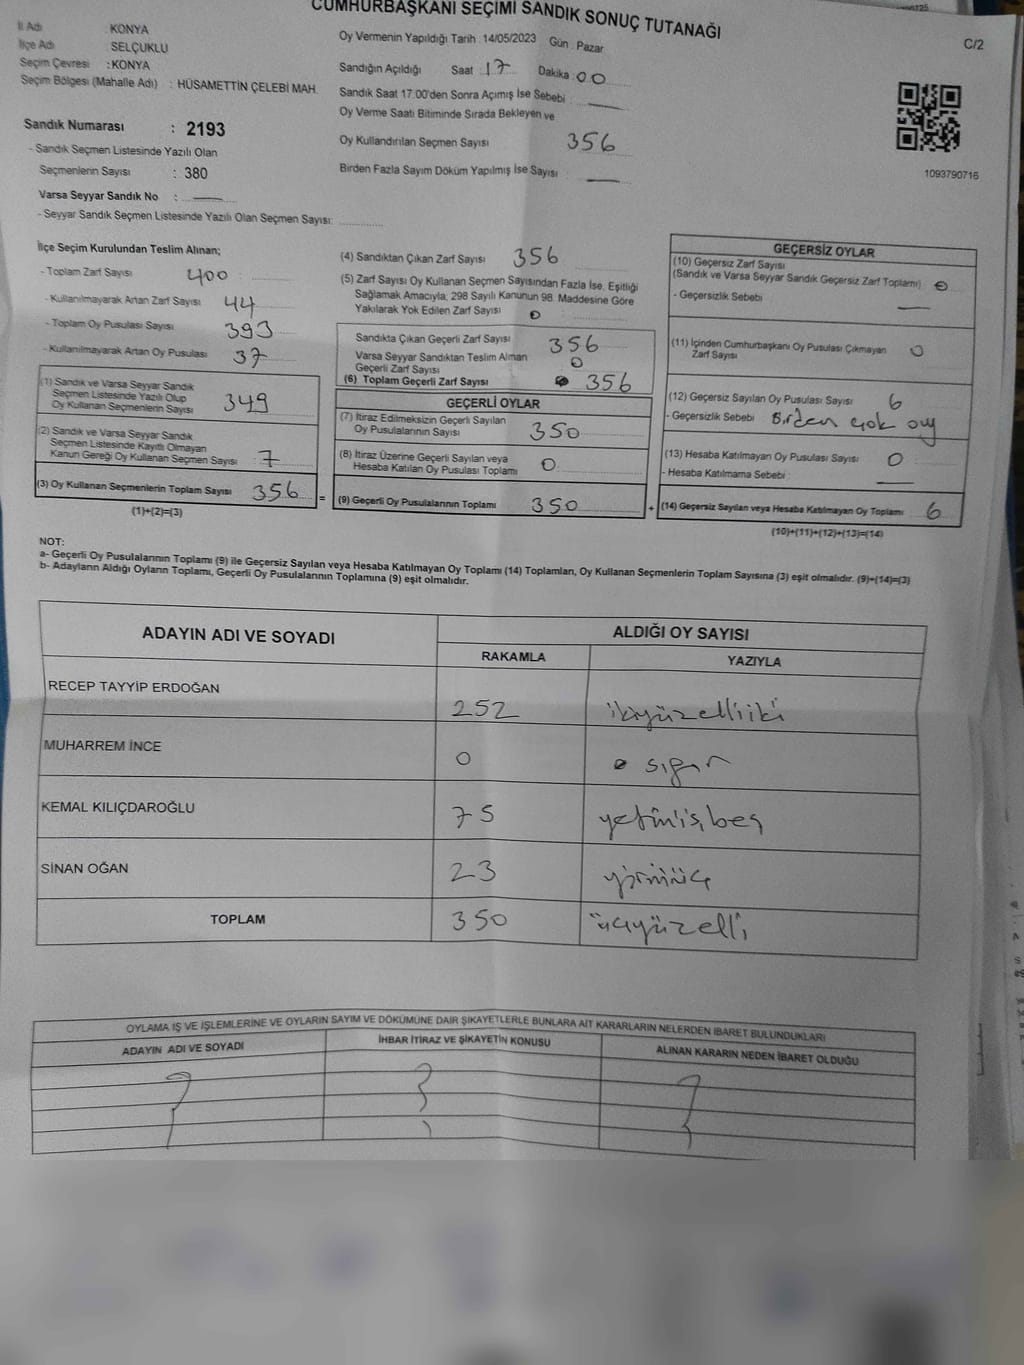 CUMHURBAŞKANI SEÇİMİ SANDIK SONUÇ TUTANAĞI
C/2
İl Adı : KONYA
İlçe Adı : SELÇUKLU
Seçim Çevresi : KONYA
Seçim Bölgesi (Mahalle Adı) : HÜSAMETTİN ÇELEBİ MAH.
Sandık Numarası : 2193
- Sandık Seçmen Listesinde Yazılı Olan
Seçmenlerin Sayısı : 380
Varsa Seyyar Sandık No : —
- Seyyar Sandık Seçmen Listesinde Yazılı Olan Seçmen Sayısı:
Oy Vermenin Yapıldığı Tarih : 14/05/2023 Gün : Pazar
Sandığın Açıldığı Saat : 17 Dakika : 00
Sandık Saat 17:00'den Sonra Açımış İse Sebebi : —
Oy Verme Saati Bitiminde Sırada Bekleyen ve
Oy Kullandırılan Seçmen Sayısı 356
Birden Fazla Sayım Döküm Yapılmış İse Sayısı : —
1093790716
İlçe Seçim Kurulundan Teslim Alınan;
- Toplam Zarf Sayısı : 400
- Kullanılmayarak Artan Zarf Sayısı : 44
- Toplam Oy Pusulası Sayısı : 393
- Kullanılmayarak Artan Oy Pusulası : 37
(1) Sandık ve Varsa Seyyar Sandık
Seçmen Listesinde Yazılı Olup
Oy Kullanan Seçmenlerin Sayısı : 349
(2) Sandık ve Varsa Seyyar Sandık
Seçmen Listesinde Kayıtlı Olmayan
Kanun Gereği Oy Kullanan Seçmen Sayısı : 7
(3) Oy Kullanan Seçmenlerin Toplam Sayısı 356 =
(1)+(2)=(3)
(4) Sandıktan Çıkan Zarf Sayısı 356
(5) Zarf Sayısı Oy Kullanan Seçmen Sayısından Fazla İse, Eşitliği
Sağlamak Amacıyla, 298 Sayılı Kanunun 98. Maddesine Göre
Yakılarak Yok Edilen Zarf Sayısı : 0
Sandıkta Çıkan Geçerli Zarf Sayısı : 356
Varsa Seyyar Sandıktan Teslim Alınan
Geçerli Zarf Sayısı : 0
(6) Toplam Geçerli Zarf Sayısı : 356
GEÇERLİ OYLAR
(7) İtiraz Edilmeksizin Geçerli Sayılan
Oy Pusulalarının Sayısı : 350
(8) İtiraz Üzerine Geçerli Sayılan veya
Hesaba Katılan Oy Pusulası Toplamı : 0
(9) Geçerli Oy Pusulalarının Toplamı : 350 +
GEÇERSİZ OYLAR
(10) Geçersiz Zarf Sayısı
(Sandık ve Varsa Seyyar Sandık Geçersiz Zarf Toplamı) : 0
- Geçersizlik Sebebi : —
(11) İçinden Cumhurbaşkanı Oy Pusulası Çıkmayan
Zarf Sayısı : 0
(12) Geçersiz Sayılan Oy Pusulası Sayısı : 6
- Geçersizlik Sebebi : Birden çok oy
(13) Hesaba Katılmayan Oy Pusulası Sayısı : 0
- Hesaba Katılmama Sebebi : —
(14) Geçersiz Sayılan veya Hesaba Katılmayan Oy Toplamı : 6
(10)+(11)+(12)+(13)=(14)
NOT:
a- Geçerli Oy Pusulalarının Toplamı (9) ile Geçersiz Sayılan veya Hesaba Katılmayan Oy Toplamı (14) Toplamları, Oy Kullanan Seçmenlerin Toplam Sayısına (3) eşit olmalıdır. (9)+(14)=(3)
b- Adayların Aldığı Oyların Toplamı, Geçerli Oy Pusulalarının Toplamına (9) eşit olmalıdır.
ADAYIN ADI VE SOYADI ALDIĞI OY SAYISI
RAKAMLA YAZIYLA
RECEP TAYYİP ERDOĞAN 252 ikiyüzelliiki
MUHARREM İNCE 0 sıfır
KEMAL KILIÇDAROĞLU 75 yetmişbeş
SİNAN OĞAN 23 yirmiüç
TOPLAM 350 üçyüzelli
OYLAMA İŞ VE İŞLEMLERİNE VE OYLARIN SAYIM VE DÖKÜMÜNE DAİR ŞİKAYETLERLE BUNLARA AİT KARARLARIN NELERDEN İBARET BULUNDUKLARI
ADAYIN ADI VE SOYADI İHBAR İTİRAZ VE ŞİKAYETİN KONUSU ALINAN KARARIN NEDEN İBARET OLDUĞU